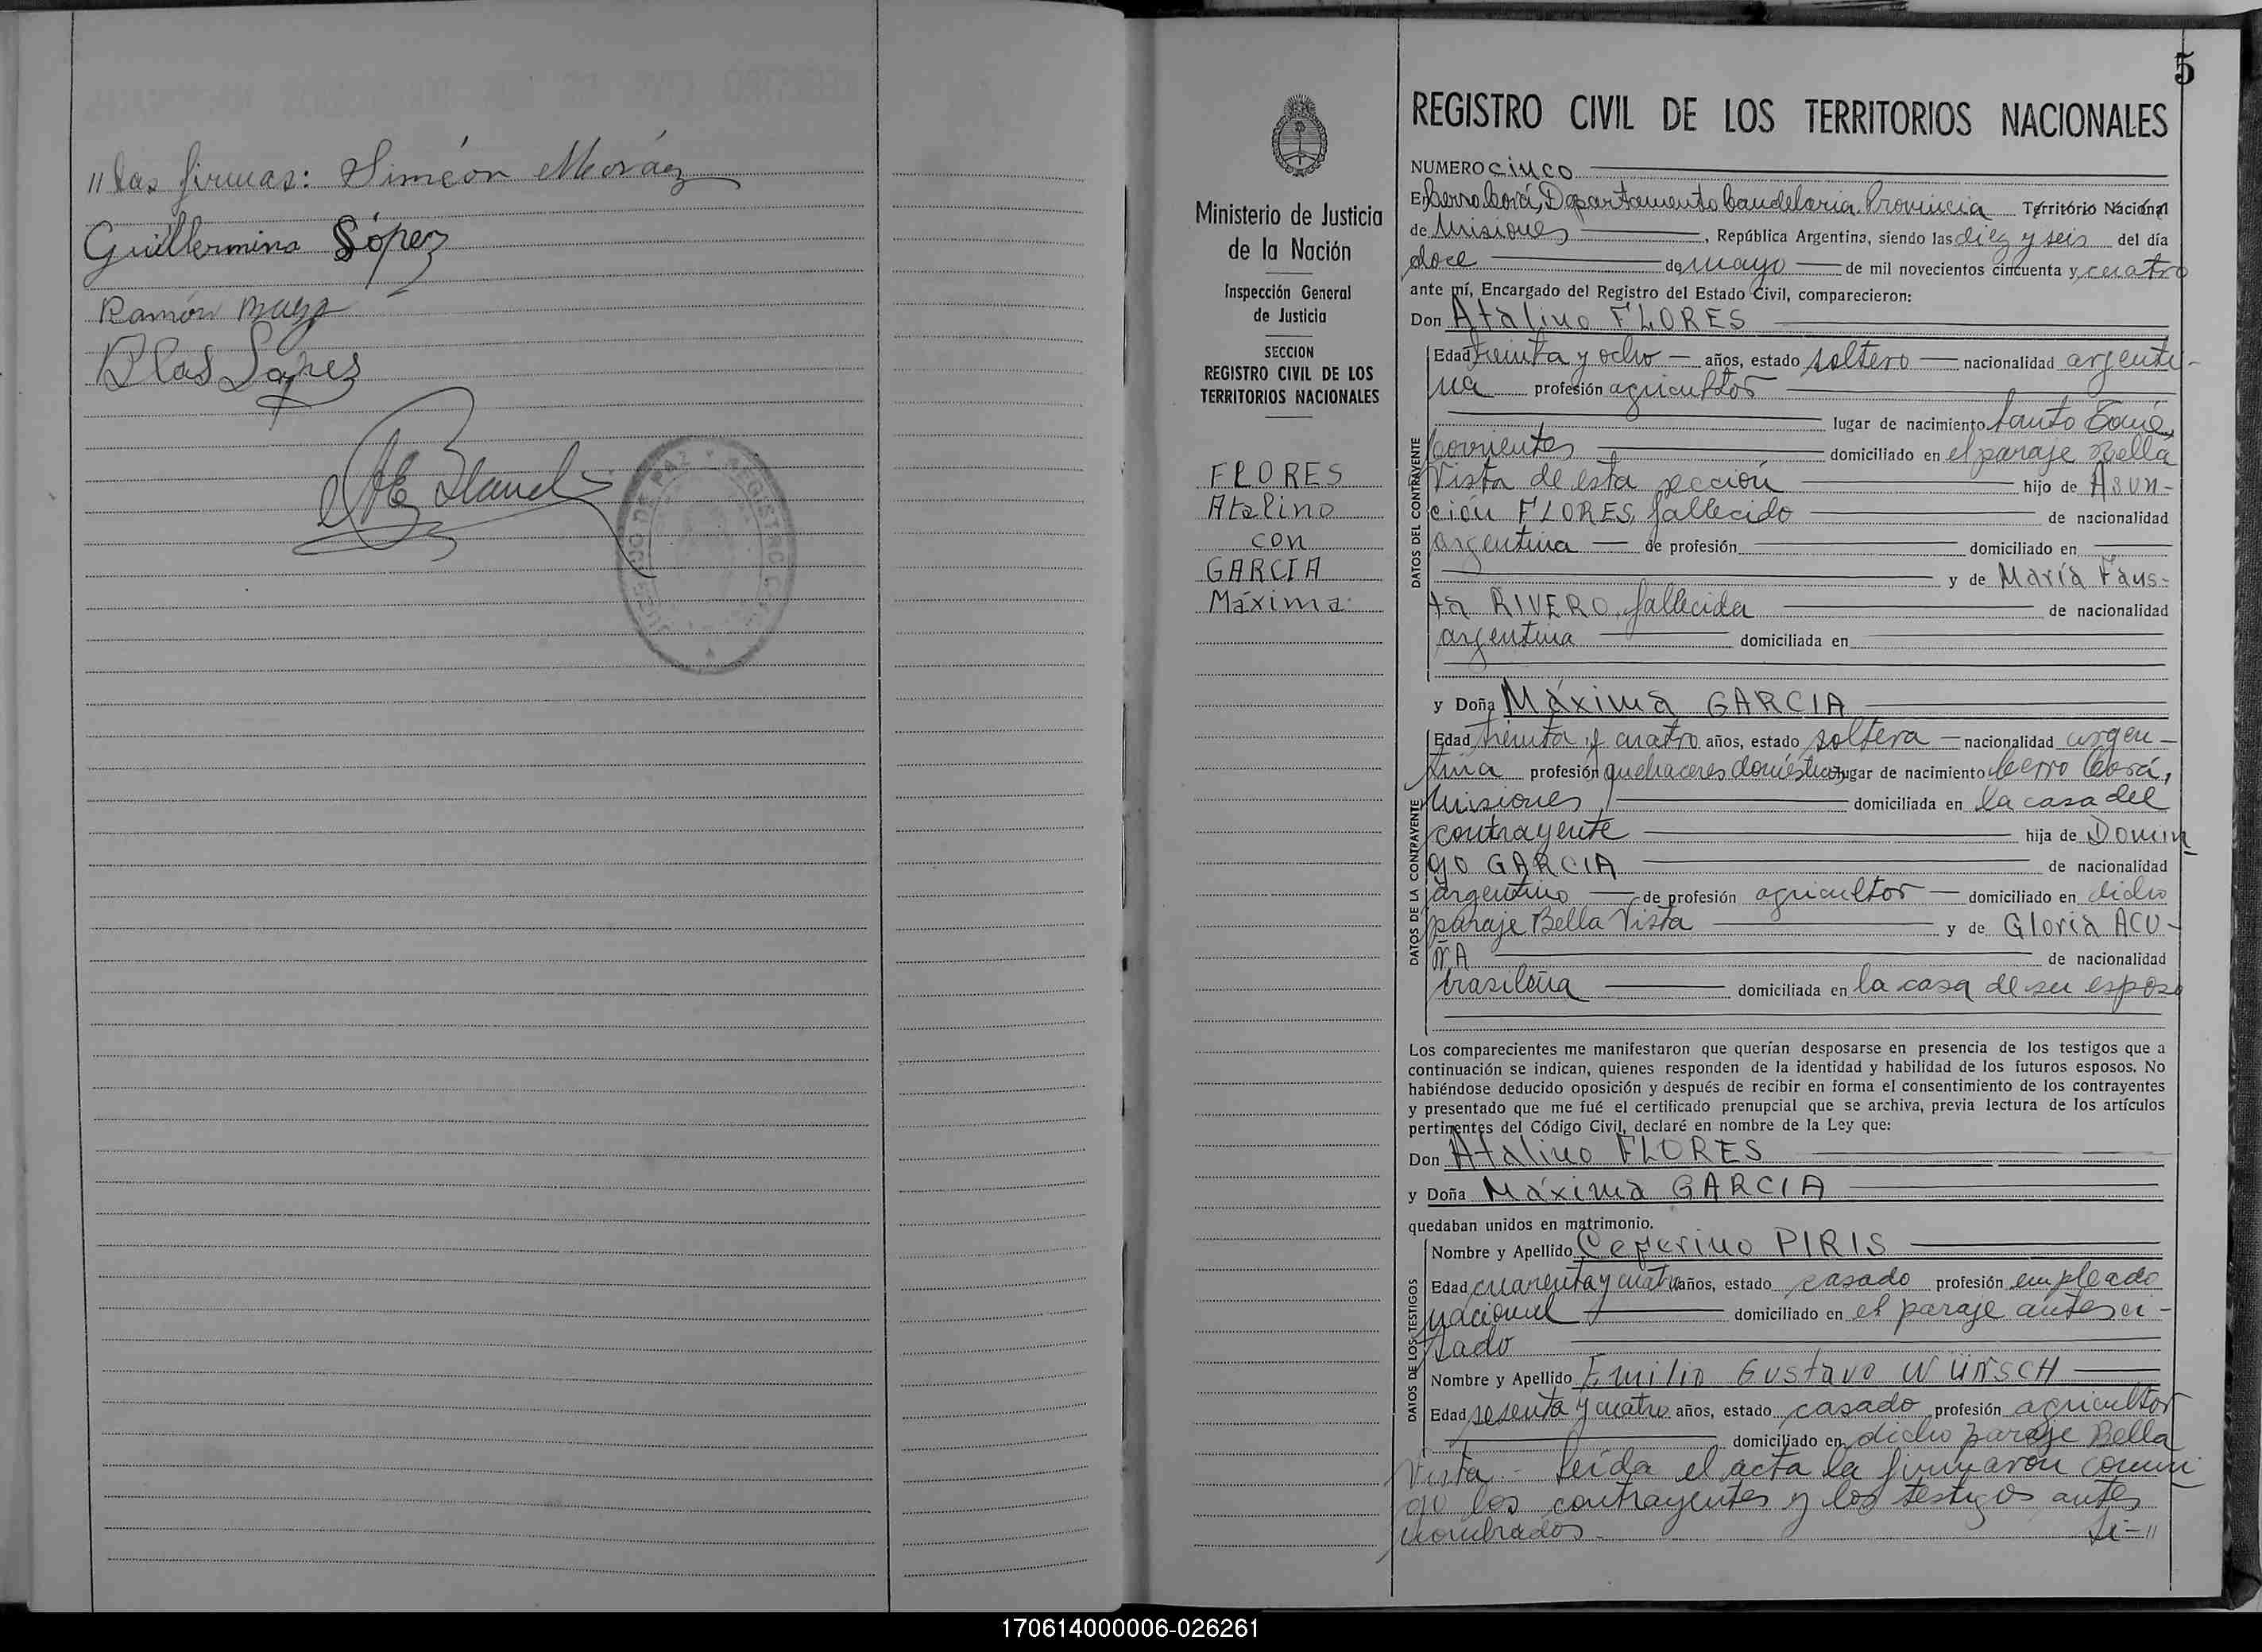 " las firmas: Simeón Moráez
Guillermina López
Ramón
Blas López
JUEZ DE PAZ Y REGISTRO CIVIL
5
REGISTRO CIVIL DE LOS TERRITORIOS NACIONALES
Ministerio de Justicia
de la Nación
Inspección General
de Justicia
SECCION
REGISTRO CIVIL DE LOS
TERRITORIOS NACIONALES
FLORES
Atalino
con
GARCIA
Máxima
NUMERO cinco
En Cerro Corá, Departamento Candelaria, Provincia Territorio Nacional
de Misiones, República Argentina, siendo las diez y seis del día
doce de mayo de mil novecientos cincuenta y cuatro
ante mí, Encargado del Registro del Estado Civil, comparecieron:
Don Atalino FLORES
DATOS DEL CONTRAYENTE
Edad treinta y ocho años, estado soltero nacionalidad argenti-
na profesión agricultor
lugar de nacimiento Santo Tomé,
Corrientes domiciliado en el paraje Bella
Vista de esta sección hijo de Asun-
ción FLORES, fallecido de nacionalidad
argentina de profesión domiciliado en
y de María Faus-
ta RIVERO, fallecida de nacionalidad
argentina domiciliada en
y Doña Máxima GARCIA
DATOS DE LA CONTRAYENTE
Edad treinta y cuatro años, estado soltera nacionalidad argen-
tina profesión quehaceres domésticos lugar de nacimiento Cerro Corá,
Misiones domiciliada en la casa del
contrayente hija de Domin-
go GARCIA de nacionalidad
argentino de profesión agricultor domiciliado en dicho
paraje Bella Vista y de Gloria ACU-
ÑA de nacionalidad
brasileña domiciliada en la casa de su esposo
Los comparecientes me manifestaron que querían desposarse en presencia de los testigos que a
continuación se indican, quienes responden de la identidad y habilidad de los futuros esposos. No
habiéndose deducido oposición y después de recibir en forma el consentimiento de los contrayentes
y presentado que me fué el certificado prenupcial que se archiva, previa lectura de los artículos
pertinentes del Código Civil, declaré en nombre de la Ley que:
Don Atalino FLORES
y Doña Máxima GARCIA
quedaban unidos en matrimonio.
DATOS DE LOS TESTIGOS
Nombre y Apellido Ceferino PIRIS
Edad cuarenta y cuatro años, estado casado profesión empleado
nacional domiciliado en el paraje antes ci-
tado
Nombre y Apellido Emilio Gustavo WÜNSCH
Edad sesenta y cuatro años, estado casado profesión agricultor
domiciliado en dicho paraje Bella
Vista.- Leída el acta la firmaron conmi-
go los contrayentes y los testigos antes
nombrados.-
170614000006-026261